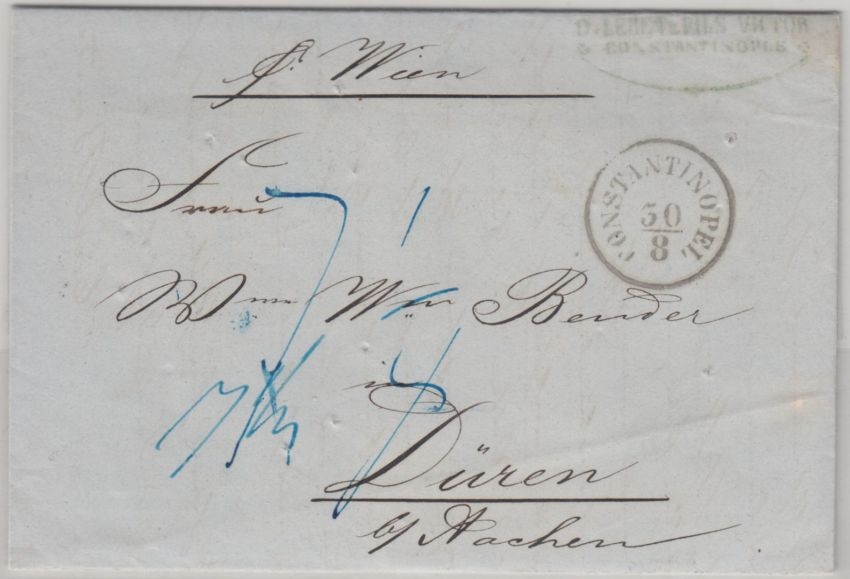 D. LEBET & FILS VIKTOR
CONSTANTINOPLE
pr. Wien
CONSTANTINOPEL
30
8
Frau
Wwe Wm Bender
in
Düren
b/ Aachen